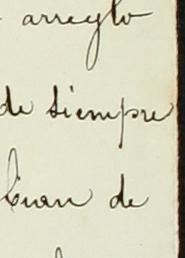 arreglo
de siempre
de